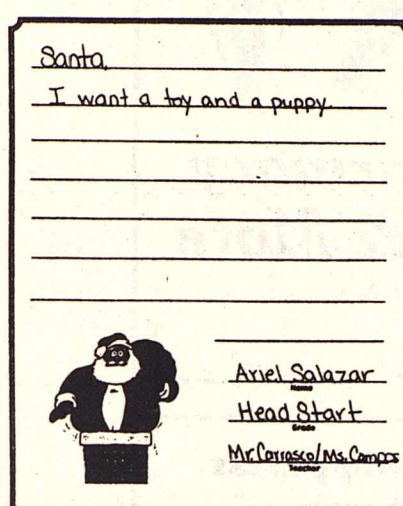 Santa,
I want a toy and a puppy.
Ariel Salazar
Name
Head Start
Grade
Mr. Carrasco/Ms. Campos
Teacher